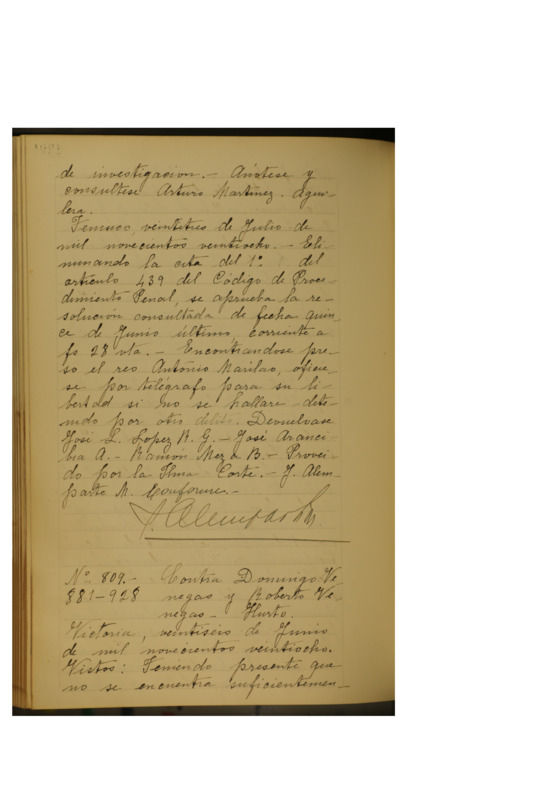 de investigación.- Anótese y
consúltese Arturo Martínez. Agui-
lera.
Temuco, veintitres de Julio de
mil novecientos veintiocho. - Eli-
minando la cita del 1º del
artículo 439 del Código de Proce-
dimiento Penal, se aprueba la re-
solución consultada de fecha quin-
ce de Junio último, corriente a
fs 28 vta. - Encontrandose pre-
so el reo Antonio Marilao, ofície-
se por telégrafo para su li-
bertad si no se hallare dete-
nido por otro delito. Devuelvase
José L. Lopez R. G. - José Aranci-
bia A. - Ramón Meza B. - Provei-
do por la Iltma Corte. - J. Alem-
parte M. Conforme. -
J. Alemparte M.
Nº 809.- Contra Domingo Ve-
881-928 negas y Roberto Ve-
negas - Hurto.
Victoria, veintiseis de Junio
de mil novecientos veintiocho.
Vistos: Teniendo presente que
no se encuentra suficientemen-